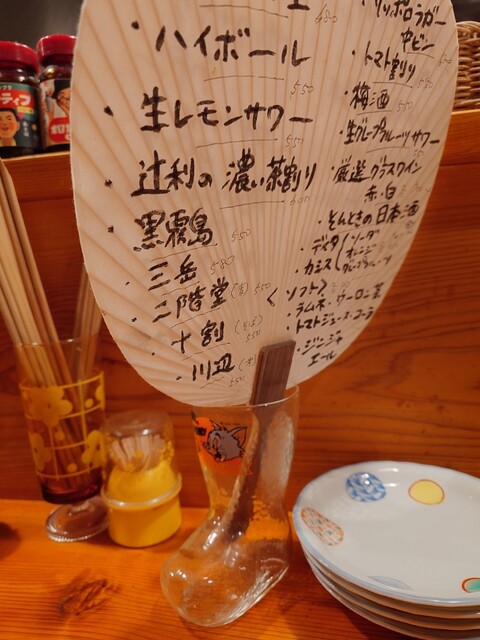 ・ハイボール 550
・生レモンサワー 550
・辻利の濃い茶割り 600
・黒霧島 550
・三岳 580
・二階堂(麦) 550
・十割(そば) 550
・川辺(米) 550
サッポロラガー
中ビン
・トマト割り
・梅酒
・生グレープフルーツサワー
・厳選グラスワイン
赤・白
・そんときの日本酒
・ディタ ソーダ
・カシス オレンジ
グレープフルーツ
<ソフト>
・ラムネ・ウーロン茶
・トマトジュース・コーラ
・ジンジャ
エール